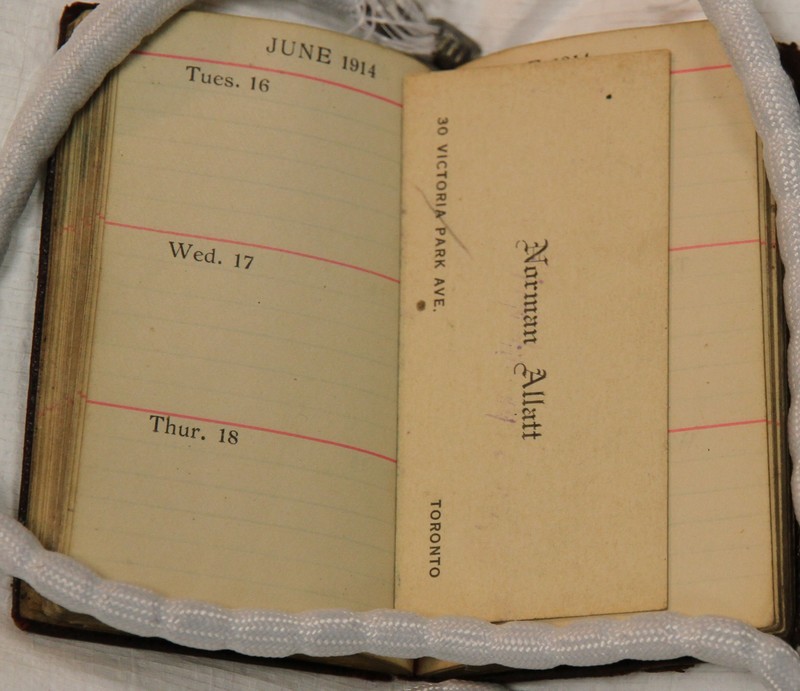 JUNE 1914
Tues. 16
Wed. 17
Thur. 18
1914
Norman Allatt
30 VICTORIA PARK AVE.
TORONTO